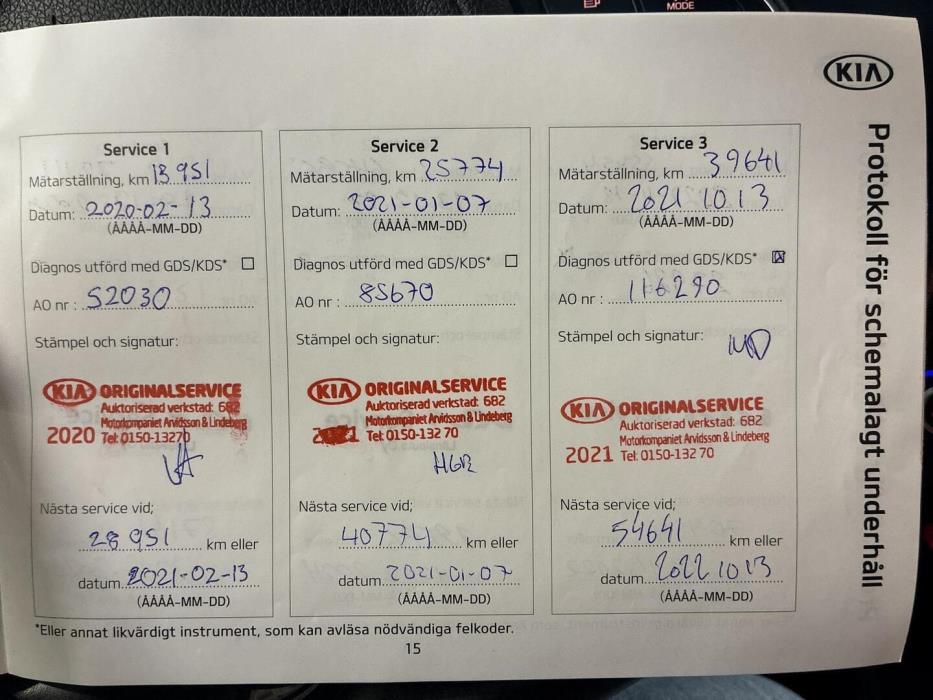 MODE
KIA
Protokoll för schemalagt underhåll
Service 1
Mätarställning, km 13 951
Datum: 2020-02-13
(ÅÅÅÅ-MM-DD)
Diagnos utförd med GDS/KDS*
AO nr : 52030
Stämpel och signatur:
KIA ORIGINALSERVICE
Auktoriserad verkstad: 682
Motorkompaniet Arvidsson & Lindeberg
2020 Tel: 0150-13270
Nästa service vid;
28 951 km eller
datum. 2021-02-13
(ÅÅÅÅ-MM-DD)
Service 2
Mätarställning, km 25774
Datum: 2021-01-07
(ÅÅÅÅ-MM-DD)
Diagnos utförd med GDS/KDS*
AO nr : 85670
Stämpel och signatur:
KIA ORIGINALSERVICE
Auktoriserad verkstad: 682
Motorkompaniet Arvidsson & Lindeberg
2021 Tel: 0150-132 70
HGR
Nästa service vid;
40774 km eller
datum 2021-01-07
(ÅÅÅÅ-MM-DD)
Service 3
Mätarställning, km 39641
Datum: 2021 10 13
(ÅÅÅÅ-MM-DD)
Diagnos utförd med GDS/KDS*
AO nr : 116290
Stämpel och signatur:
KIA ORIGINALSERVICE
Auktoriserad verkstad: 682
Motorkompaniet Arvidsson & Lindeberg
2021 Tel: 0150-132 70
Nästa service vid;
54641 km eller
datum. 2022 10 13
(ÅÅÅÅ-MM-DD)
*Eller annat likvärdigt instrument, som kan avläsa nödvändiga felkoder.
15